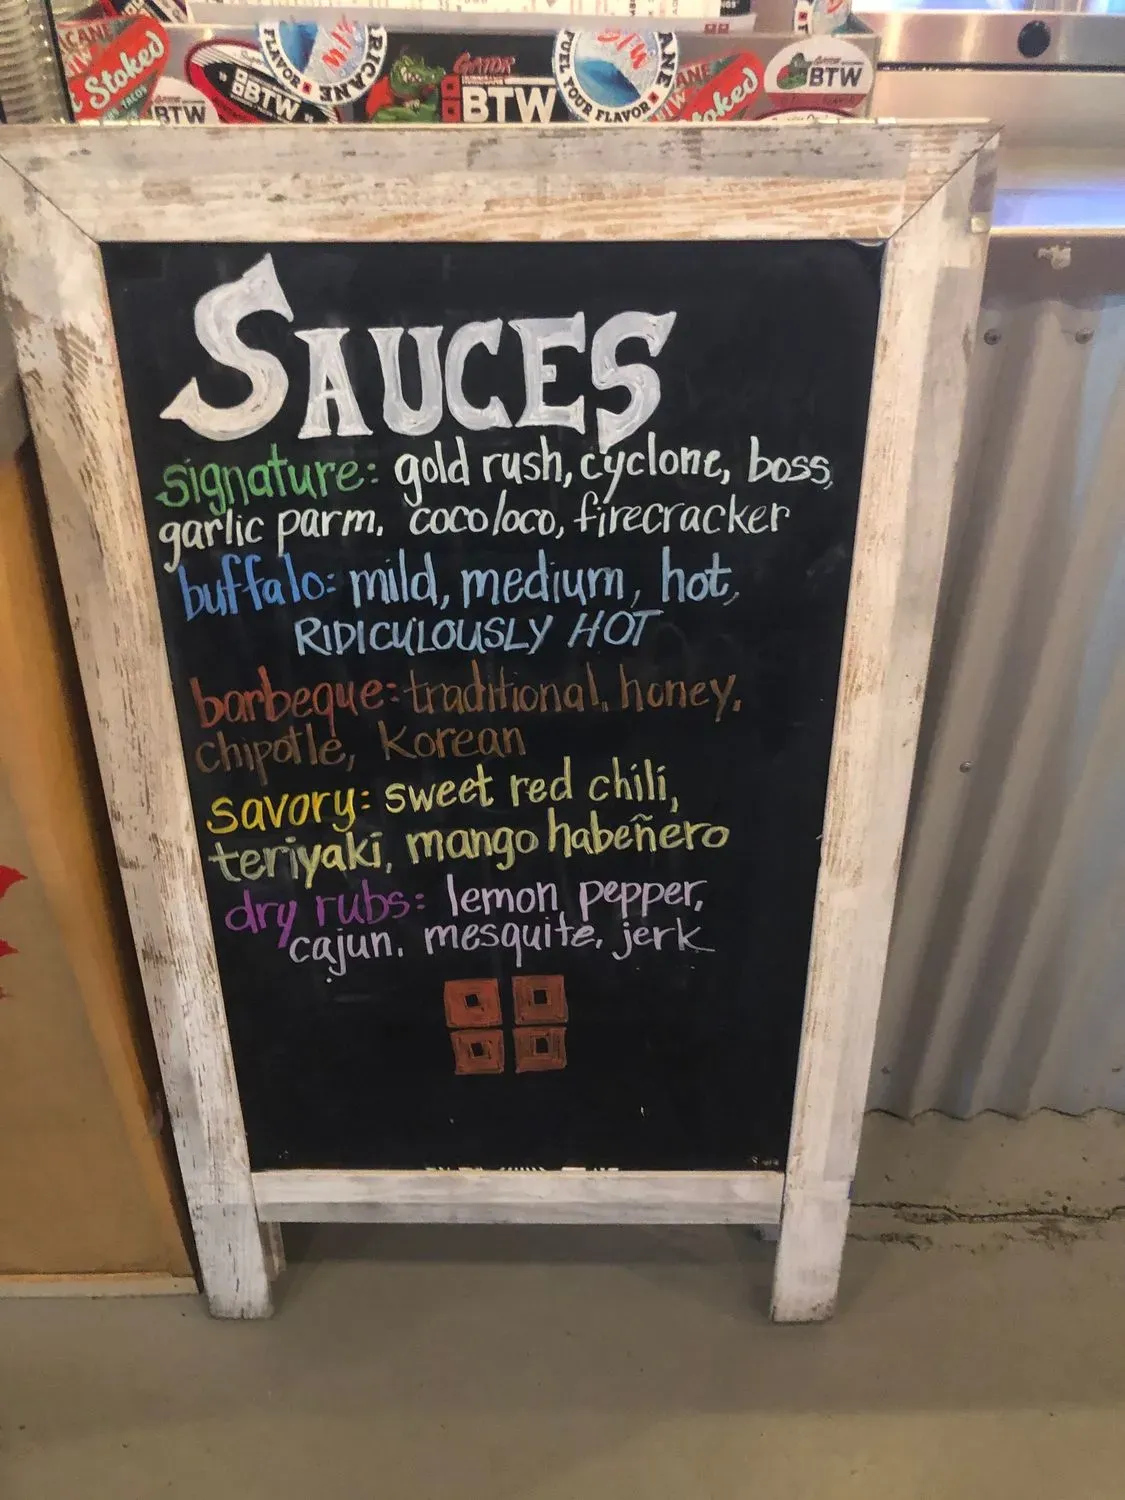 Stoked
TACOS
BTW
BTW
FLAVOR
RICANE
GATOR
BTW
FUEL YOUR FLAVOR
BTW
SAUCES
signature: gold rush, cyclone, boss,
garlic parm, coco loco, firecracker
buffalo: mild, medium, hot,
RIDICULOUSLY HOT
barbeque: traditional, honey,
chipotle, Korean
savory: sweet red chili,
teriyaki, mango habeñero
dry rubs: lemon pepper,
cajun, mesquite, jerk